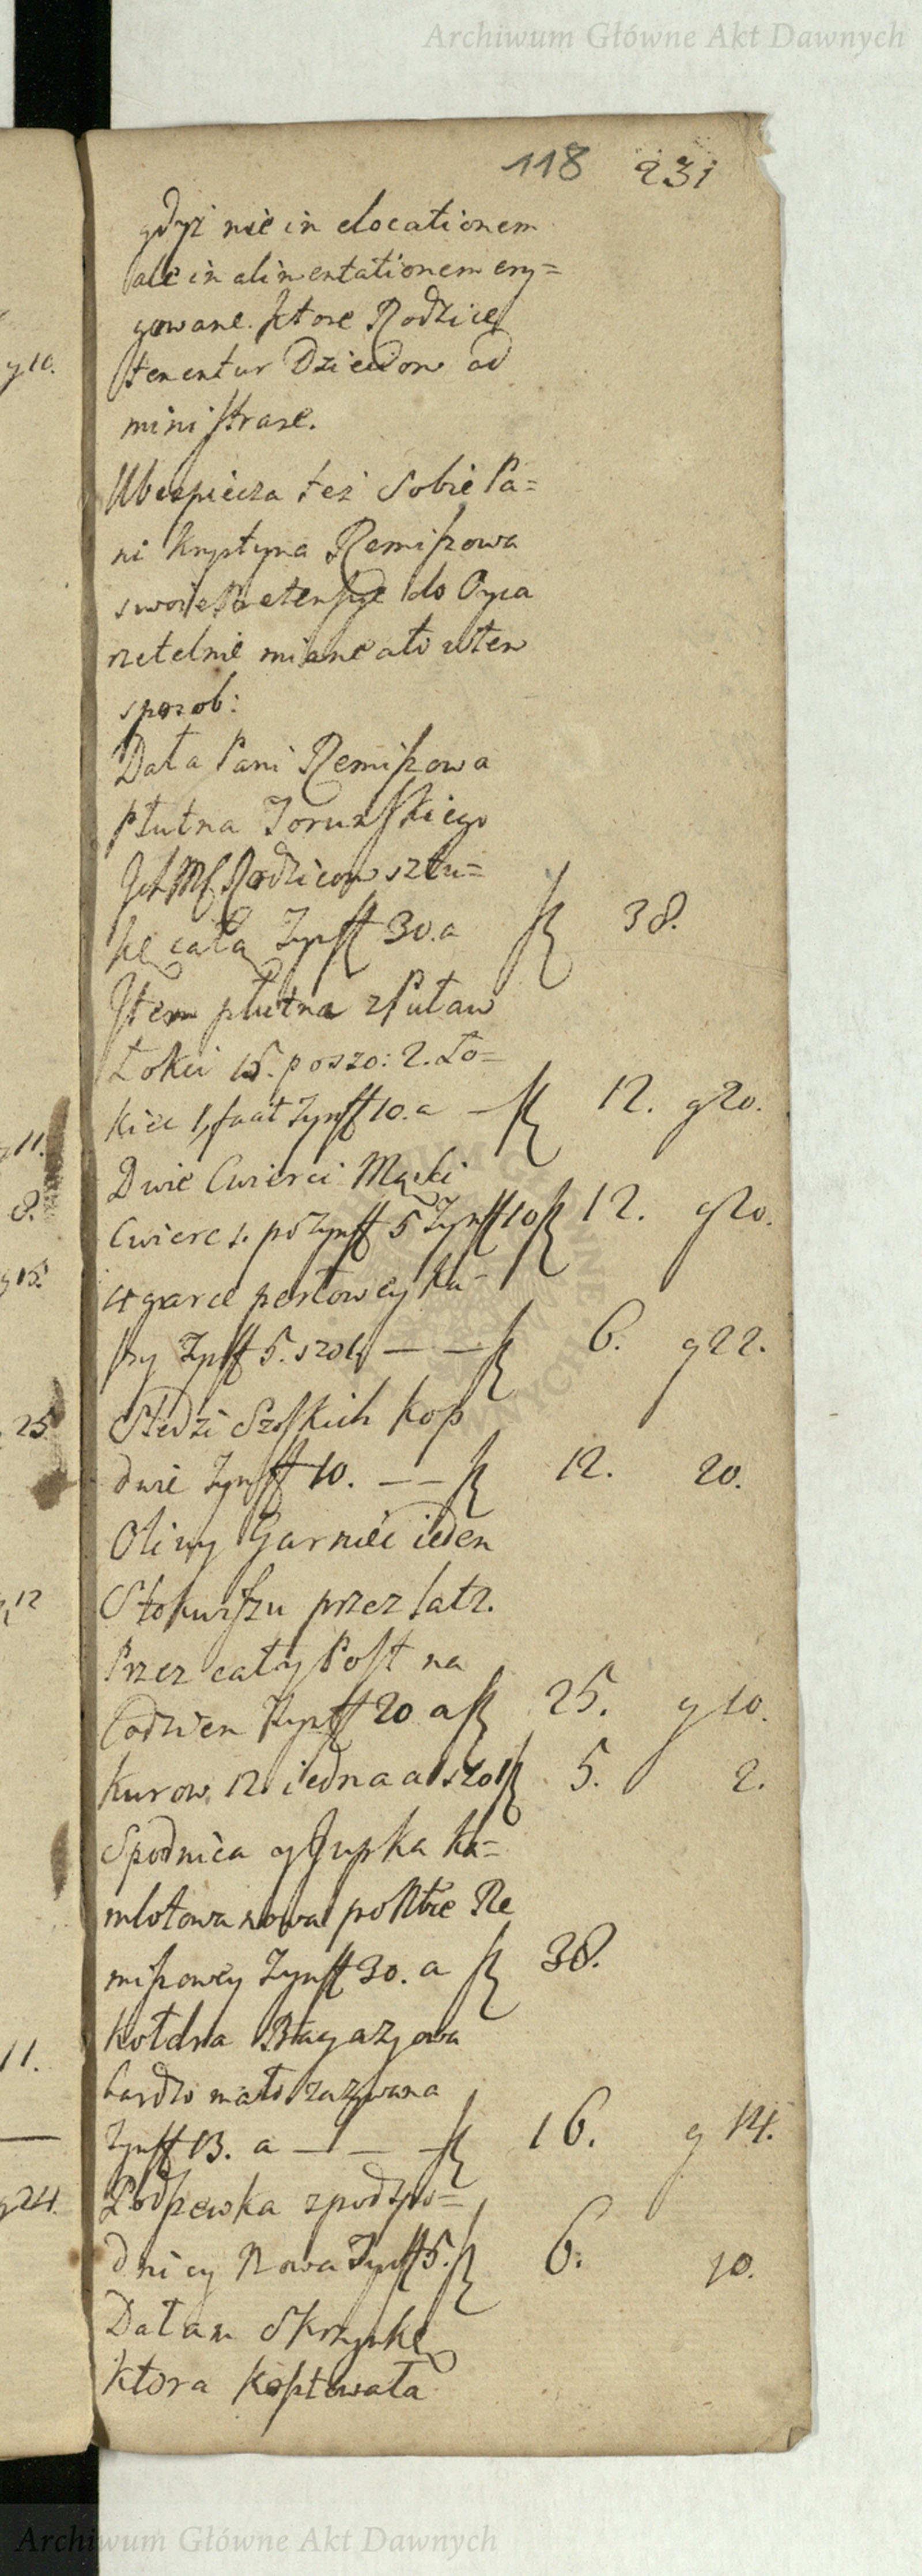 Archiwum Główne Akt Dawnych
118 231
gdyż nie in elocationem
ale in alimentationem ery=
gowane. ktore Rodzice
tenentur Dzieciom ad
ministrare.
Ubespiecza też sobie Pa=
ni Krystyna Remiszowa
swoie Pretensye do Oyca
rzetelnie miane a to w ten
sposob:
Data Pani Remiszowa
Płutna Torunskiego
Rodzicow sztu=
kę całą Tynff 30. a f 38.
Item płutna z Puław
Łokci 15. po szo: 2. Ło=
kiec 1, Tynff 10. a — f 12. g 20.
Dwie Cwierci Mąki
Cwierc 1. po Tynff 5 Tynff 10 f 12. g 20.
4 garce perłowey ka=
szy Tynff 5. szo — — f 6. g 22.
Sledzi Szoskich kop
dwie Tynff 10. — — f 12. 20.
Oliwy Garniec ieden
Stokwiszu przez lat 2.
Przez cały Post na
Tynff 20 a f 25. g 10.
Kurow 12 iedna a szo f 5. 2.
Spodnica y Jupka ka=
mlotowa nowa po Re
miszowey Tynff 30. a f 38.
Kołdra Bagazyowa
bardzo mało zazywana
Tynff 13. a — — f 16. g 14.
Podszewka spod spo=
dnicy Nowa Tynff 5. f 6. 10.
Dałam Skrzynkę
ktora kosztowała
g 10.
11.
8.
g 15.
25
12
11.
g 24.
Archiwum Główne Akt Dawnych